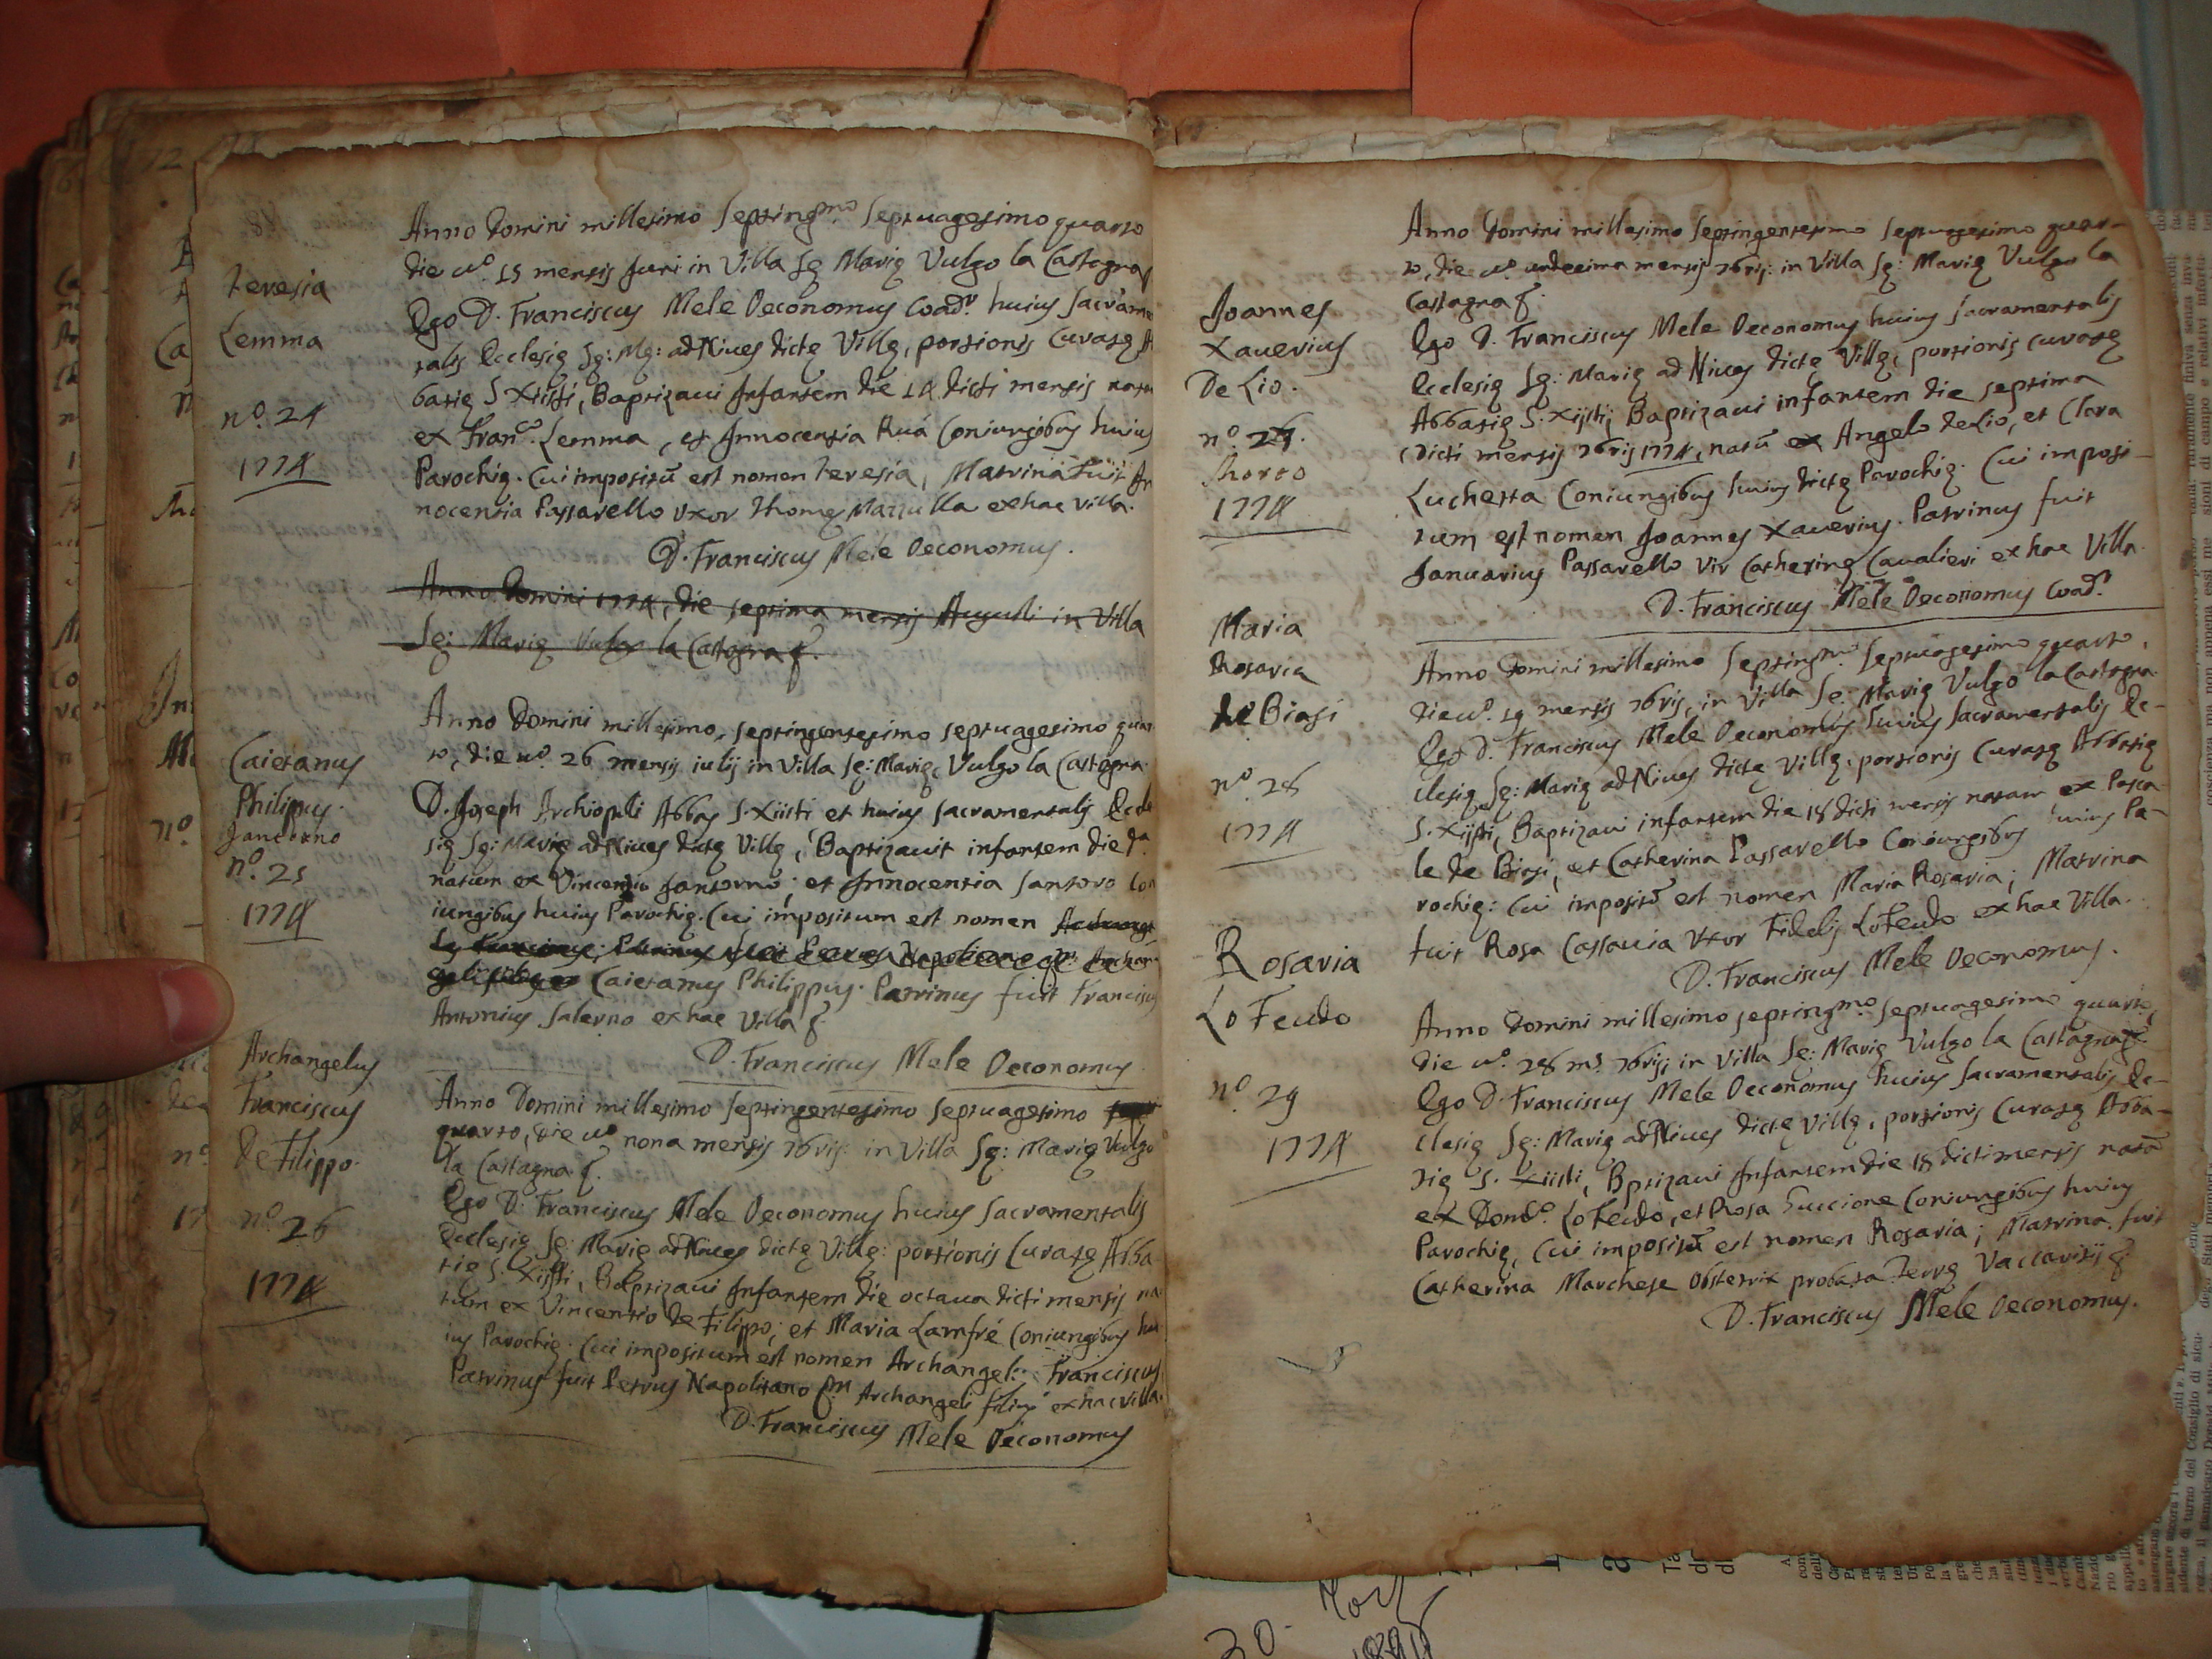 Teresia
Lemma
nº. 24
1774
Anno Domini millesimo septing.mo septuagesimo quarto
die uº. 15 mensis Juni in Villa Sę Marię Vulgo la Castagna
Ego D. Franciscus Mele Oeconomus Coad.r huius sacramen
talis Ecclesię Sę: Mę: ad Nives dictę Villę, portionis Curatę A
batię S. Xiisti, Baptizavi Infantem die 14 dicti mensis natu
ex Fran.co Lemma, et Innocentia Ruá Coniungibus huius
Parochię. Cui impositũ est nomen Teresia, Matrina Fuit In
nocentia Passarello uxor Thomę Mazzulla ex hac Villa.
D. Franciscus Mele Oeconomus.
Anno Domini 1774, die septima mensis Augusti in Villa
Sę: Marię Vulgo la Castagna
Caietanus
Philippus
Jantorno
nº. 25
1774
Anno Domini millesimo, septingentesimo septuagesimo quar
to, die uº. 26 mensis iulij in Villa Sę: Marię, Vulgo la Castagna.
D. Joseph Archiopoli Abbas S. Xiisti et huius sacramentalis Eccle
się Sę: Marię ad Nives dictę Villę, Baptizavit infantem die
natum ex Vincentio Jantorno; et Innocentia Santoro Con
iungibus huius Parochię. Cui impositum est nomen
Caietanus Philippus. Patrinus fuit Franciscus
Antonius Salerno ex hac Villa
D. Franciscus Mele Oeconomus
Archangelus
Franciscus
de Filippo.
nº. 26
1774
Anno Domini millesimo septingentesimo septuagesimo
quarto, die uº nona mensis 7bris: in Villa Sę: Marię Vulgo
la Castagna
Ego D. Franciscus Mele Oeconomus huius sacramentalis
Ecclesię Sę: Marię ad Nives dictę Villę: portionis Curatę Abba
tię S. Xiisti, Baptizavi Infantem die octava dicti mensis na
tum ex Vincentio de Filippo; et Maria Lamfré Coniungibus hu
ius Parochię. Cui impositum est nomen Archangel: Franciscus
Patrinus fuit Petrus Napolitano Archangeli filius ex hac Villa.
D. Franciscus Mele Oeconomus
Joannes
Xaverius
De Lio.
nº. 27.
Morto
1774
Anno Domini millesimo septingentesimo septuagesimo quar-
to, die uº. undecima mensis 7bris: in Villa Sę: Marię Vulgo la
Castagna
Ego D. Franciscus Mele Oeconomus huius sacramentalis
Ecclesię Sę: Marię ad Nives dictę Villę, portionis curatę
Abbatię S: Xiisti; Baptizavi infantem die septima
dicti mensis 7bris 1774, natũ ex Angelo deLio, et Clara
Luchetta Coniungibus huius dictę Parochię. Cui imposi-
tum est nomen Joannes Xaverius. Patrinus fuit
Januarius Passarello Vir Catherinę Cavalieri ex hac Villa.
D. Franciscus Mele Oeconomus Coad.r
Maria
Rosaria
de Biasi
nº. 28
1774
Anno Domini millesimo septing.mo septuagesimo quarto,
die uº. 19 mensis 7bris, in Villa Sę: Marię Vulgo la Castagna
Ego D. Franciscus Mele Oeconomus huius sacramentalis Ec-
clesię Sę: Marię ad Nives dictę Villę, portionis Curatę Abbatię
S. Xijsti, Baptizavi infantem die 18 dicti mensis natam ex Pasca
le de Biasi, et Catherina Passarello Coniungibus huius Pa-
rochię: Cui impositũ est nomen Maria Rosaria; Matrina
fuit Rosa Cassavia Uxor Fidelis Lo Feudo ex hac Villa.
D. Franciscus Mele Oeconomus.
Rosaria
Lo Feudo
nº. 29
1774
Anno Domini millesimo septing.mo septuagesimo quarto,
die uº. 28 ms. 7bris, in Villa Sę: Marię Vulgo la Castagna
Ego D. Franciscus Mele Oeconomus huius sacramentalis Ec-
clesię Sę: Marię ad Nives dictę Villę, portionis Curatę Abba-
tię S. Xiisti, Bptizavi Infantem die 18 dicti mensis natã
ex Dom.co Lo Feudo, et Rosa Succione Coniungibus huius
Parochię, Cui impositũ est nomen Rosaria; Matrina fuit
Catherina Marchese obstetrix probata Terrę Vaccaritij
D. Franciscus Mele Oeconomus.
30.